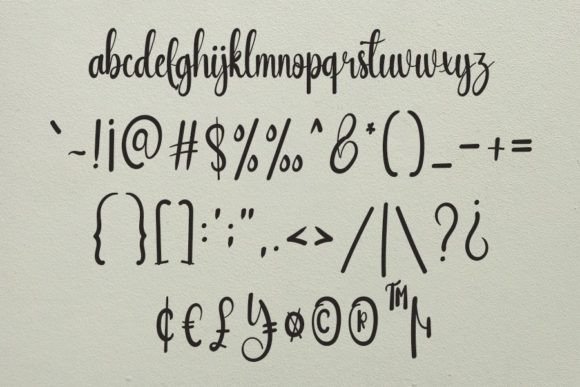 abcdefghijklmnopqrstuvwxyz
`~!¡@#$%‰^&*()_-+=
{}[]:';",.<>/|\?¿
¢€£¥¤©®™µ